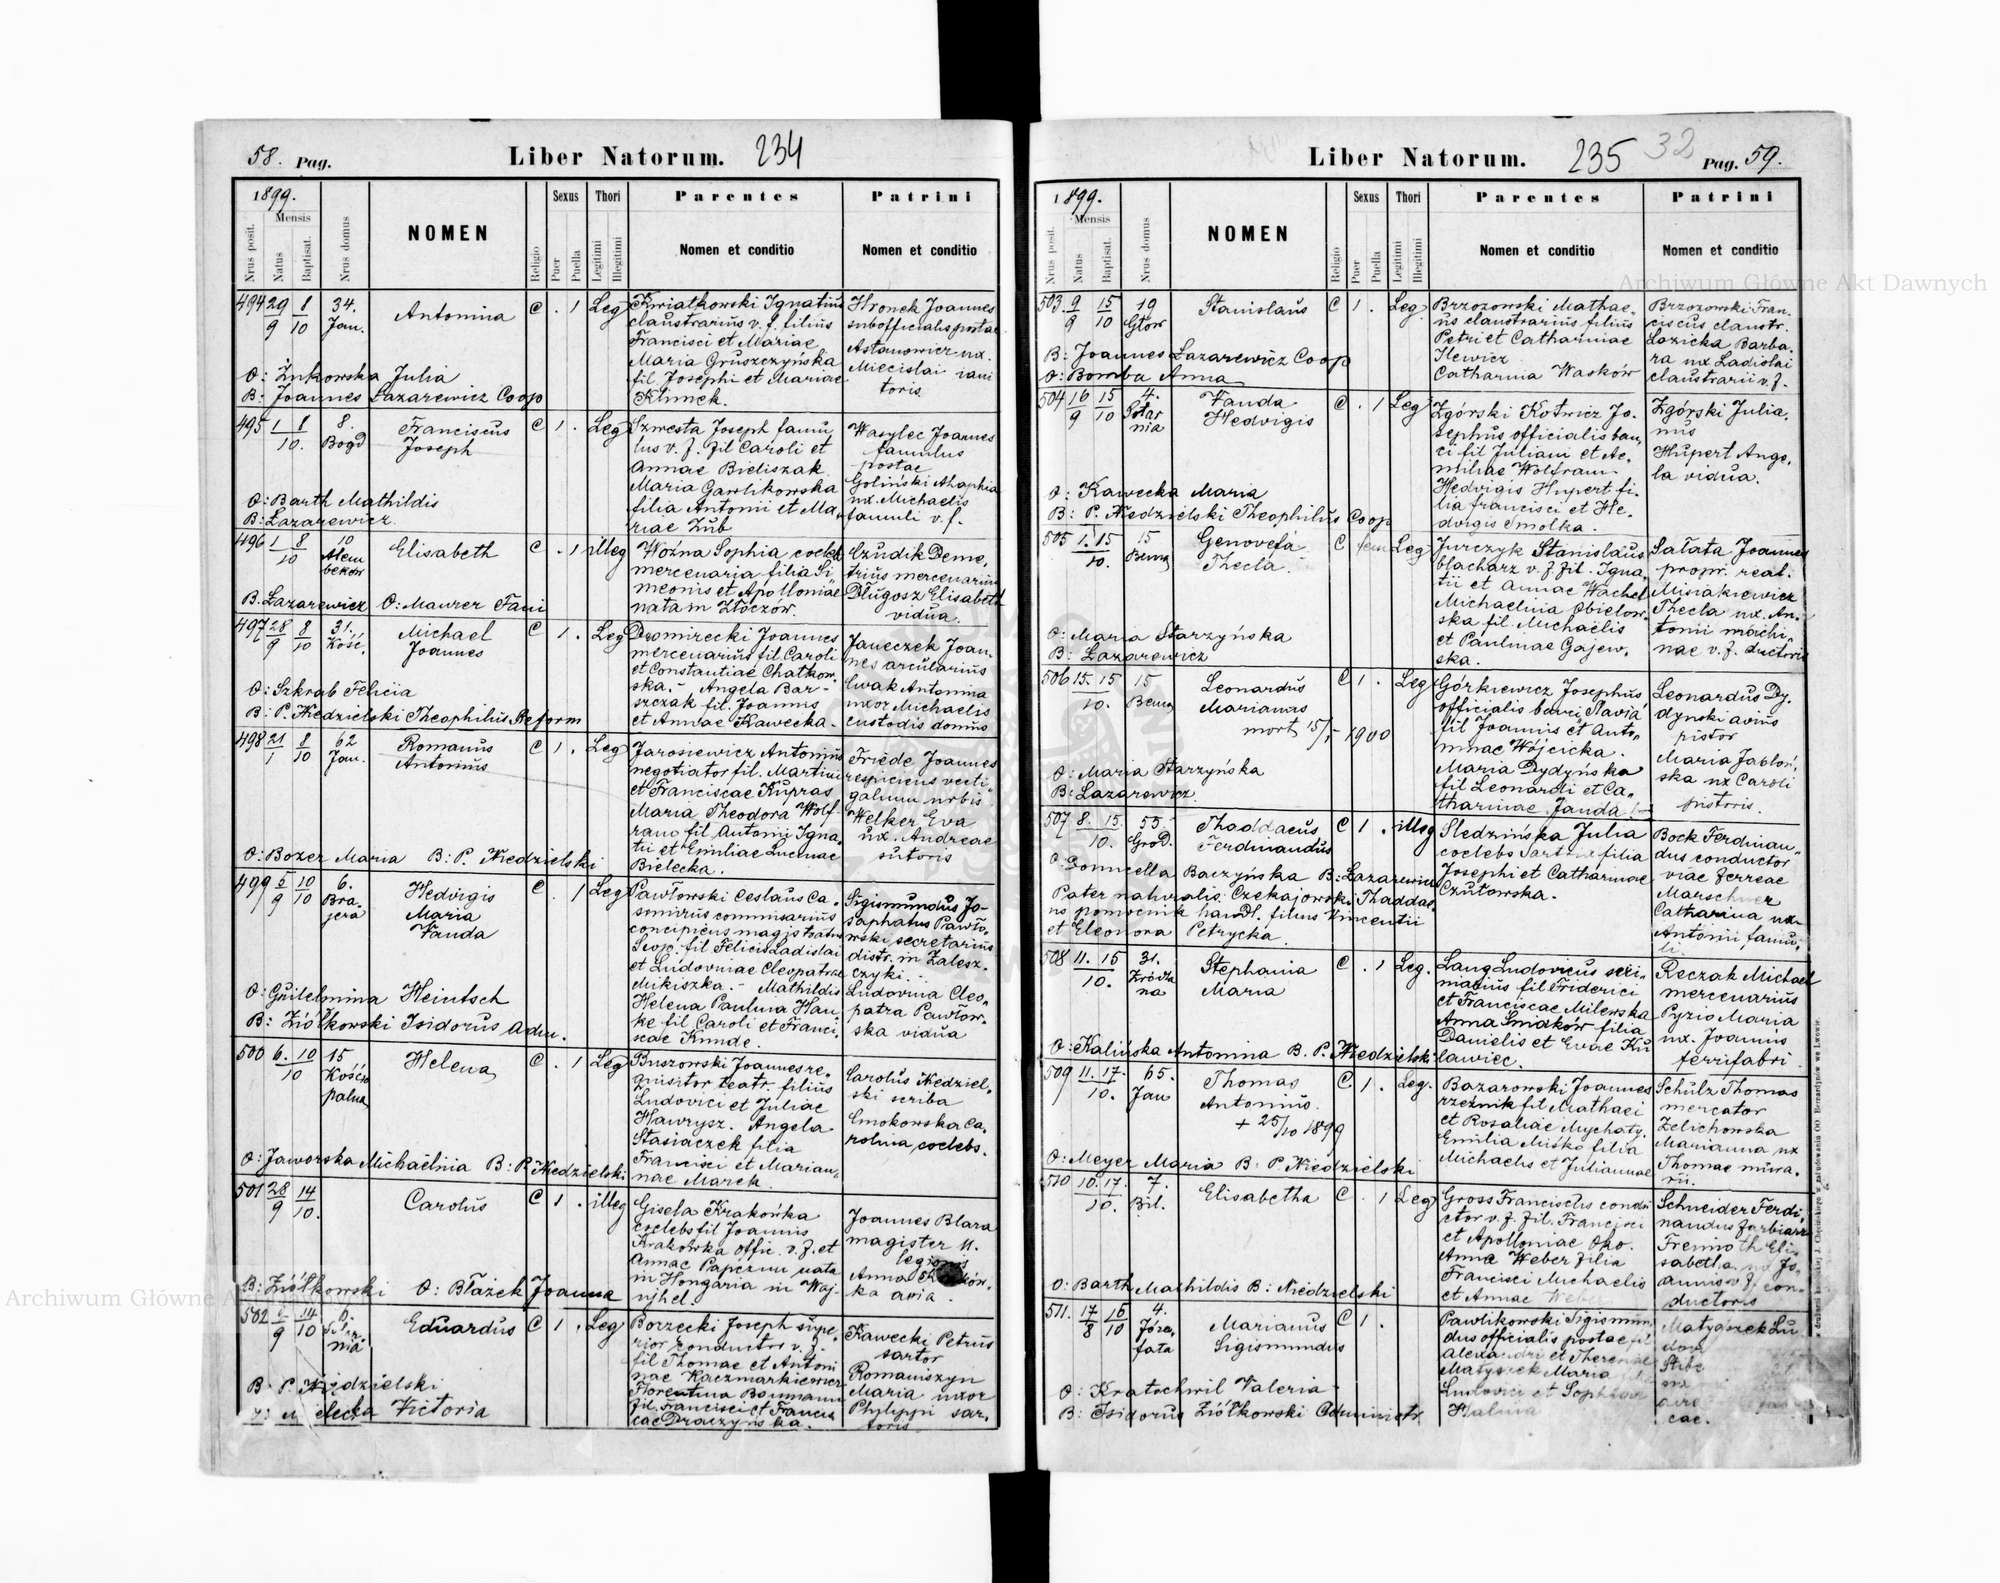 58. Pag.
Liber Natorum.
234
1899.
Nrus posit.
Mensis
Natus
Baptisat.
Nrus domus
NOMEN
Religio
Sexus
Puer
Puella
Thori
Legitimi
Illegitimi
Parentes
Nomen et conditio
Patrini
Nomen et conditio
494 29/9 8/10 34. Jan.
Antonina
C . 1 Leg
Kwiatkowski Ignatius
claustrarius v. f. filius
Francisci et Mariae
Maria Gruszczyńska
fil Josephi et Mariae
Klimek.
Hronek Joannes
subofficialis postae
Astanowicz ux.
Miecislai iani
toris.
O: Żukowska Julia
B: Joannes Łazarewicz Coop
495 1/10. 8 8. Bogd
Franciscus
Joseph
C 1 . Leg
Szwesta Joseph famu
lus v. f. fil Caroli et
Annae Bieliszak
Maria Gawlikowska
filia Antonii et Ma
riae Zub
Wasylec Joannes
famulus
postae
Goliński Ahaphia
ux. Michaelis
famuli v. f.
O: Barth Mathildis
B: Łazarewicz
496 1/10 8 10
Elisabeth
C . 1 illeg
Woźna Sophia coeleb
mercenaria filia Si
meonis et Apolloniae
nata in Złoczów.
Czudik Deme,
trius mercenarius
Długosz Elisabeth
vidua.
B. Łazarewicz O: Maurer Fani
497 28/9 8/10 31. Kość.
Michael
Joannes
C 1 . Leg
Dromirecki Joannes
mercenarius fil Caroli
et Constantiae Chatkow
ska.- Angela Bar-
szczak fil. Joannis
et Annae Kawecka.
Janeczek Joan-
nes arcularius
Ewak Antonina
uxor Michaelis
custodis domus
O: Szkrab Felicia
B: P. Niedzielski Theophilus Reform
498 21/1 8/10 62 Jan.
Romanus
Antonius
C 1 . Leg
Jarosiewicz Antonius
negotiator fil. Martini
et Franciscae Kupras
Maria Theodora Wolf-
ram fil Antonii Igna-
tii et Emiliae Lucinae
Bielecka.
Friede Joannes
respiciens vecti-
galium urbis
Welker Eva
ux. Andreae
sutoris
O: Bozer Maria B: P. Niedzielski
499 5/9 10/10 6. Bra
jera
Hedvigis
Maria
Vanda
C . 1 Leg
Pawłowski Ceslaus Ca-
simirus commisarius
concipiens magistratus
Leop. fil Felicis Ladislai
et Ludovinae Cleopatrae
Mikiszka.- Mathildis
Helena Paulina Han
ke fil Caroli et Franci
scae Kunde.
Sigismundus Jo-
saphatus Pawło-
wski secretarius
distr. in Zalesz-
czyki.
Ludovina Cleo-
patra Pawłow-
ska vidua
O: Guilelmina Heintsch
B: Ziółkowski Isidorus Adm.
500 6./10 10 15 Kośćio
palna
Helena
C . 1 Leg
Buszowski Joannes re-
quisitor teatr. filius
Ludovici et Juliae
Hawrysz. Angela
Stasiaczek filia
Francisci et Marian-
nae Marek.
Carolus Niedziel-
ski scriba
Cmokowska Ca-
rolina coelebs.
O: Jaworska Michaelina B: P. Niedzielski
501 28/9 14/10.
Carolus
C 1 . illeg
Gisela Krakowka
coelebs fil Joannis
Krakowka offic. v. f. et
Annae Papczun nata
in Hongaria in Waj-
njhel.
Joannes Blara
magister
Anna
ka avia.
B: Ziółkowski O: Błażek Joanna
502 14/10
Eduardus
C 1 . Leg
Borzecki Joseph supe-
rior conductor v. f.
fil Thomae et Antoni
nae Kaczmarkiewicz
Florentina Baumann
fil Francisci et Francis
cae
Kawecki Petrus
sartor
Romaniszyn
Maria uxor
Phylippi sar-
toris
B. P. Niedzielski
Victoria
Liber Natorum.
235
32
Pag. 59.
1899.
Nrus posit.
Mensis
Natus
Baptisat.
Nrus domus
NOMEN
Religio
Sexus
Puer
Puella
Thori
Legitimi
Illegitimi
Parentes
Nomen et conditio
Patrini
Nomen et conditio
503. 9/9 15/10 19 Głow
Stanislaus
C 1 . Leg
Brzozowski Mathae-
us claustrarius filius
Petri et Catharinae
Ilewicz
Catharina Wasków
Brzozowski Fran-
ciscus claustr.
Łozicka Barba-
ra ux Ladislai
claustrarii v. f.
B: Joannes Łazarewicz Coop
O: Bomba Anna
504 16/9 15/10 4. Solar
nia
Vanda
Hedvigis
C . 1 Leg
Zgórski Kotwicz Jo-
sephus officialis ban-
ci fil Juliani et Ae-
miliae Wolfram
Hedvigis Hupert fi-
lia francisci et He-
dvigis Smolka.
Zgórski Julia-
nus
Hupert Ange-
la vidua.
O: Kawecka Maria
B: P. Niedzielski Theophilus Coop
505 1./10. 15 15 Bema
Genovefa
Thecla
C fem Leg
Jurczyk Stanislaus
blacharz v. f. fil. Igna-
tii et Annae Wachel
Michaelina Obielow-
ska fil Michaelis
et Paulinae Gajew-
ska.
Sałata Joannes
propr. real.
Misiakiewicz
Thecla ux. An-
tonii machi-
nae v. f. ductoris
O: Maria Starzyńska
B: Łazarewicz
506 15./10. 15 15 Bema
Leonardus
Marianus
mort 15/5 1900
C 1 . Leg
Górkiewicz Josephus
officialis banci Slavia
fil Joannis et Anto-
ninae Wójcicka.
Maria Dydyńska
fil Leonardi et Ca-
tharinae Janda
Leonardus Dy-
dynski avius
pistor
Maria Jabłoń-
ska ux Caroli
pistoris.
O: Maria Starzyńska
B: Łazarewicz
507 8./10. 15. 55. Grod.
Thaddaeus
Ferdinandus
C 1 . illeg
Sledzińska Julia
coelebs filia
Josephi et Catharinae
Czułowska.
Bock Ferdinan-
dus conductor
viae ferreae
Marschner
Catharina ux.
Antonii famu-
li
O Domicella Baczyńska B: Łazarewicz
Pater naturalis: Czekajowski Thaddae-
us pomocnik handl. filius Vincentii
et Eleonora Petrycka.
508 11./10. 15 31. Zródla
na
Stephania
Maria
C . 1 Leg.
Lang Ludovicus seri-
niarius fil Friderici
et Franciscae Milewska
Anna Smiaków filia
Danielis et Evae Ku
lawiec.
Reczak Michael
mercenarius
Pyzio Maria
ux. Joannis
ferrifabri
O: Kalińska Antonina B. P. Niedzielski
509 11./10. 17. 65. Jan
Thomas
Antonius.
+ 25/10 1899
C 1 . Leg.
Bazarowski Joannes
rzeźnik fil Mathaei
et Rosaliae Mychaty.
Emilia Miśko filia
Michaelis et Juliannae
Schulz Thomas
mercator
Zelichowska
Marianna ux
Thomae mura-
rii.
O: Meyer Maria B: P. Niedzielski
510 10./10. 17. 7. Bil.
Elisabetha
C . 1 Leg
Gross Franciscus condu
ctor v. f. fil. Francisci
et Apolloniae Oko.
Anna Weber filia
Francisci Michaelis
et Annae Weber
Schneider Ferdi-
nandus farbiarz
Fremoth Eli-
sabetha ux Jo-
annis v. f. con-
ductoris
O: Barth Mathildis B: Niedzielski
511. 17/8 15/10 4. Józe-
fata
Marianus
Sigismundus
C 1 .
Pawlikowski Sigismun-
dus officialis postae fil
Alexandri et Theresiae
Matyszek Maria
Ludovici et Sophiae
Halina
Matyaszek Lu
cae.
O: Kratochwil Valeria
B: Isidorus Ziółkowski Administr.
w drukarni katolickiej J. Chęcińskiego w zabudowaniu OO. Bernardynów we Lwowie.
Archiwum Główne Akt Dawnych
Archiwum Główne Akt Dawnych